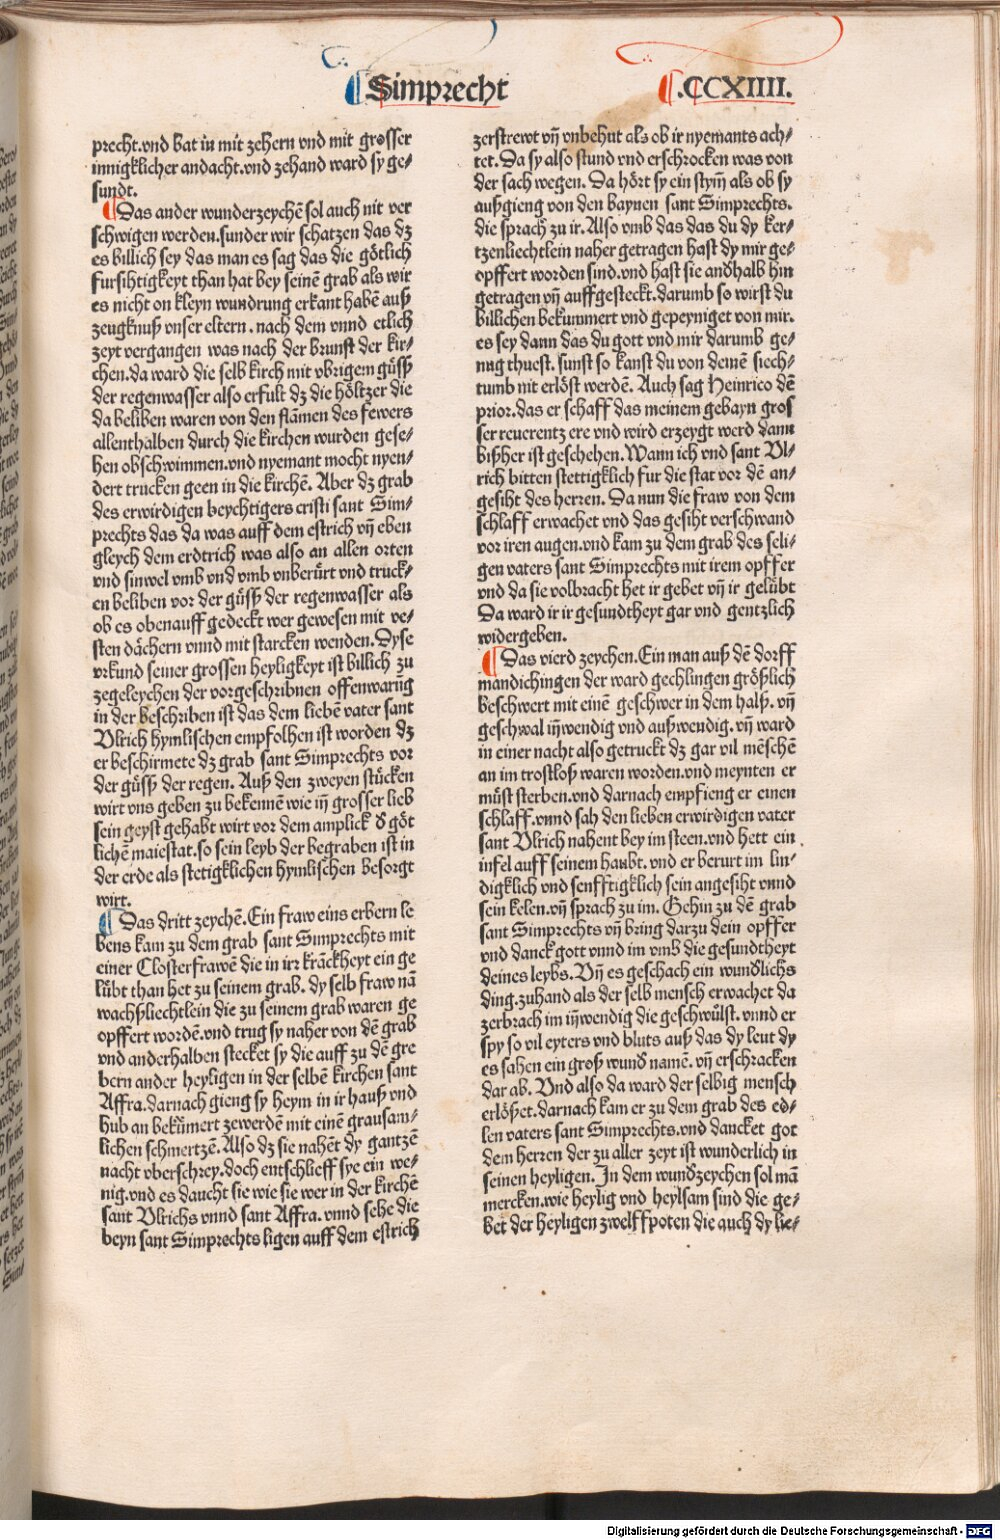 Simprecht
.CCXIIII.
precht.vnd bat in mit zehern vnd mit grosser
innigklicher andacht.vnd zehand ward sy ge⸗
sundt.
Das ander wunderzeychē sol auch nit ver
schwigen werden.sunder wir schatzen das dz
es billich sey das man es sag das die götlich
fursihtigkeyt than hat bey seinē grab als wir
es nicht on kleyn wundrung erkant habē auß
zeugknuß vnser eltern. nach dem vnnd etlich
zeyt vergangen was nach der brunst der kir⸗
chen.da ward die selb kirch mit vbrigem güsß
der regenwasser also erfult dz die höltzer die
da beliben waren von den flāmen des fewers
allenthalben durch die kirchen wurden gese⸗
hen obschwimmen.vnd nyemant mocht nyen⸗
dert trucken geen in die kirchē. Aber dz grab
des erwirdigen beychtigers cristi sant Sim⸗
prechts das da was auff dem estrich vn̄ eben
gleych dem erdtrich was also an allen orten
vnd sinwel vmb vnd vmb vnberürt vnd truck⸗
en beliben vor der güsß der regenwasser als
ob es obenauff gedeckt wer gewesen mit ve⸗
sten dächern vnnd mit starcken wenden.Dyse
vrkund seiner grossen heyligkeyt ist billich zu
zegeleychen der vorgeschribnen offenwarūg
in der beschriben ist das dem liebē vater sant
Vlrich hymlischen empfolhen ist worden dz
er beschirmete dz grab sant Simprechts vor
der güsß der regen. Auß den zweyen stücken
wirt vns geben zu bekennē wie in̄ grosser lieb
sein geyst gehabt wirt vor dem amplick d̕ göt
lichē maiestat.so sein leyb der begraben ist in
der erde als stetigklichen hymlischen besorgt
wirt.
Das dritt zeychē.Ein fraw eins erbern le
bens kam zu dem grab sant Simprechts mit
einer Closterfrawē die in irr krāckheyt ein ge
lübt than het zu seinem grab. dy selb fraw nā
wachsliechtlein die zu seinem grab waren ge
opffert wordē.vnd trug sy naher von dē grab
vnd anderhalben stecket sy die auff zu dē gre
bern ander heyligen in der selbē kirchen sant
Affra.darnach gieng sy heym in ir hauß vnd
hub an bekūmert zewerdē mit einē grausam⸗
lichen schmertzē. Also dz sie nahēt dy gantzē
nacht vberschrey.doch entschlieff sye ein we⸗
nig.vnd es daucht sie wie sie wer in der kirchē
sant Vlrichs vnnd sant Affra. vnnd sehe die
beyn sant Simprechts ligen auff dem estrich
zerstrewt vn̄ vnbehut als ob ir nyemants ach⸗
tet.Da sy also stund vnd erschrocken was von
der sach wegen. Da hört sy ein stym̄ als ob sy
außgieng von den baynen sant Simprechts.
die sprach zu ir. Also vmb das das du dy ker⸗
tzenliechtlein naher getragen hast dy mir ge⸗
opffert worden sind.vnd hast sie and̕halb hin
getragen vn̄ auffgesteckt.darumb so wirst du
billichen bekummert vnd gepeyniget von mir.
es sey dann das du gott vnd mir darumb ge⸗
nug thuest. sunst so kanst du von deinē siech⸗
tumb nit erlöst werdē. Auch sag Heinrico dē
prior.das er schaff das meinem gebayn gros
ser reuerentz ere vnd wird erzeygt werd dann
bißher ist geschehen.Wann ich vnd sant Vl⸗
rich bitten stettigklich fur die stat vor dē an⸗
gesiht des herren. Da nun die fraw von dem
schlaff erwachet vnd das gesiht verschwand
vor iren augen.vnd kam zu dem grab des seli⸗
gen vaters sant Simprechts mit irem opffer
vnd da sie volbracht het ir gebet vn̄ ir gelübt
Da ward ir ir gesundtheyt gar vnd gentzlich
widergeben.
Das vierd zeychen.Ein man auß dē dorff
mandichingen der ward gechlingen größlich
beschwert mit einē geschwer in dem halß. vn̄
geschwal in̄wendig vnd außwendig. vn̄ ward
in einer nacht also getruckt dz gar vil mēschē
an im trostloß waren worden.vnd meynten er
müst sterben.vnd darnach empfieng er einen
schlaff.vnnd sah den lieben erwirdigen vater
sant Vlrich nahent bey im steen.vnd hett ein
infel auff seinem haubt. vnd er berurt im lin⸗
digklich vnd senfftigklich sein angesiht vnnd
sein kelen.vn̄ sprach zu im. Gehin zu dē grab
sant Simprechts vn̄ bring darzu dein opffer
vnd danck gott vnnd im vmb die gesundtheyt
deines leybs. Vn̄ es geschach ein wund̕lichs
ding.zuhand als der selb mensch erwachet da
zerbrach im in̄wendig die geschwülst. vnnd er
spy so vil eyters vnd bluts auß das dy leut dy
es sahen ein groß wund̕ namē. vn̄ erschracken
dar ab. Vnd also da ward der selbig mensch
erlößet.darnach kam er zu dem grab des ed⸗
len vaters sant Simprechts.vnd dancket got
dem herren der zu aller zeyt ist wunderlich in
seinen heyligen. In dem wund̕zeychen sol mā
mercken.wie heylig vnd heylsam sind die ge⸗
bet der heyligen zwelffpoten die auch dy lie⸗
Digitalisierung gefördert durch die Deutsche Forschungsgemeinschaft - DFG